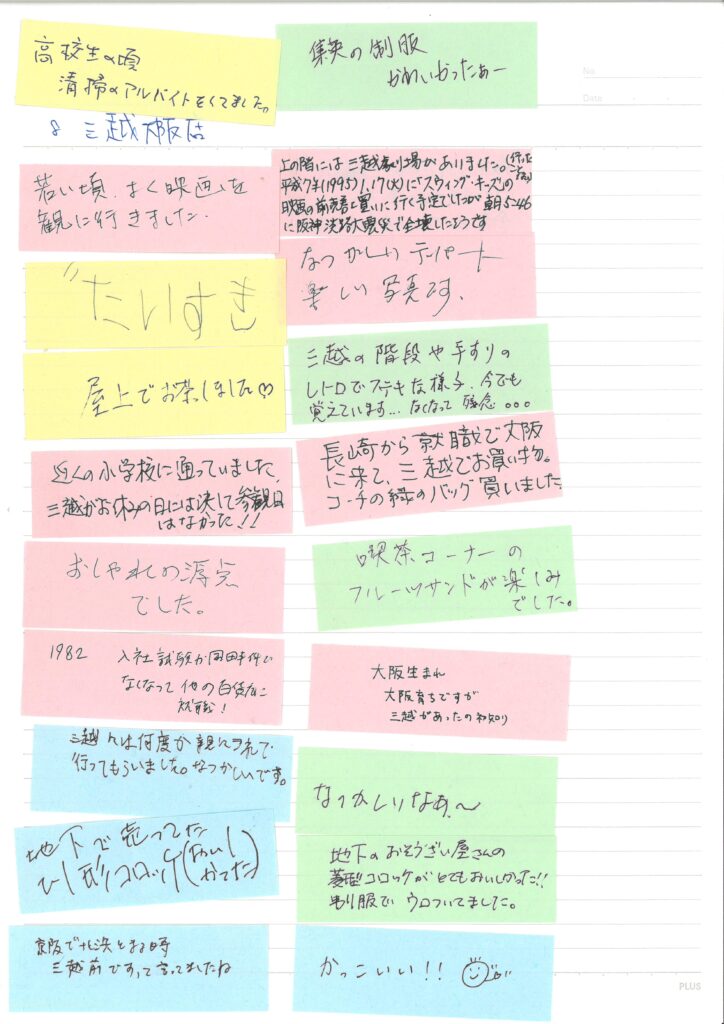 高校生の頃
清掃のアルバイトをしてました。
8 三越大阪店
若い頃、よく映画を
観に行きました。
"たいすき
屋上でお茶しました♡
近くの小学校に通っていました。
三越がお休みの日には決して参観日
はなかった!!
おしゃれの源点
でした。
1982 入社試験が岡田事件で
なくなって他の百貨店に
就職!
三越へは何度か親に
行ってもらいました。なつかしいです。
地下で売ってた
ひし形コロッケ(おいし
かった)
京阪で北浜とまる時
三越前ですって言ってましたね
の制服
かわいかったぁー
No
Date
上の階には三越劇場がありました。(行った
平成7年(1995)1.17(火)に「スウィング・キッズ」の
映画の前売券を買いに行く予定でしたが朝5:46
に阪神淡路大震災で全壊したそうです
なつかしいデパート
楽しい写真です。
三越の階段や手すりの
レトロでステキな様子、今でも
覚えています…なくなって残念。。。
長崎から就職で大阪
に来て、三越でお買い物。
コーチの緑のバッグ買いました
喫茶コーナーの
フルーツサンドが楽しみ
でした。
大阪生まれ
大阪育ちですが
三越があったの初知り
なつかしいなぁ〜
地下のおそうざい屋さんの
菱型コロッケがとてもおいしかった!!
制服でウロついてました。
かっこいい!!
PLUS